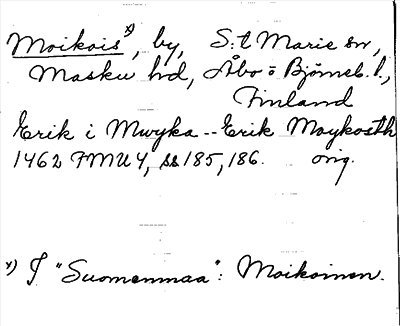 Moikois x), by, S:t Marie sn,
Masku hd, Åbo o Björneb. l.,
Finland
Erik i Mwyka -- Erik Moykosth
1462 FMU 4, ss 185, 186. orig.
x) I "Suomenmaa": Moikoinen.